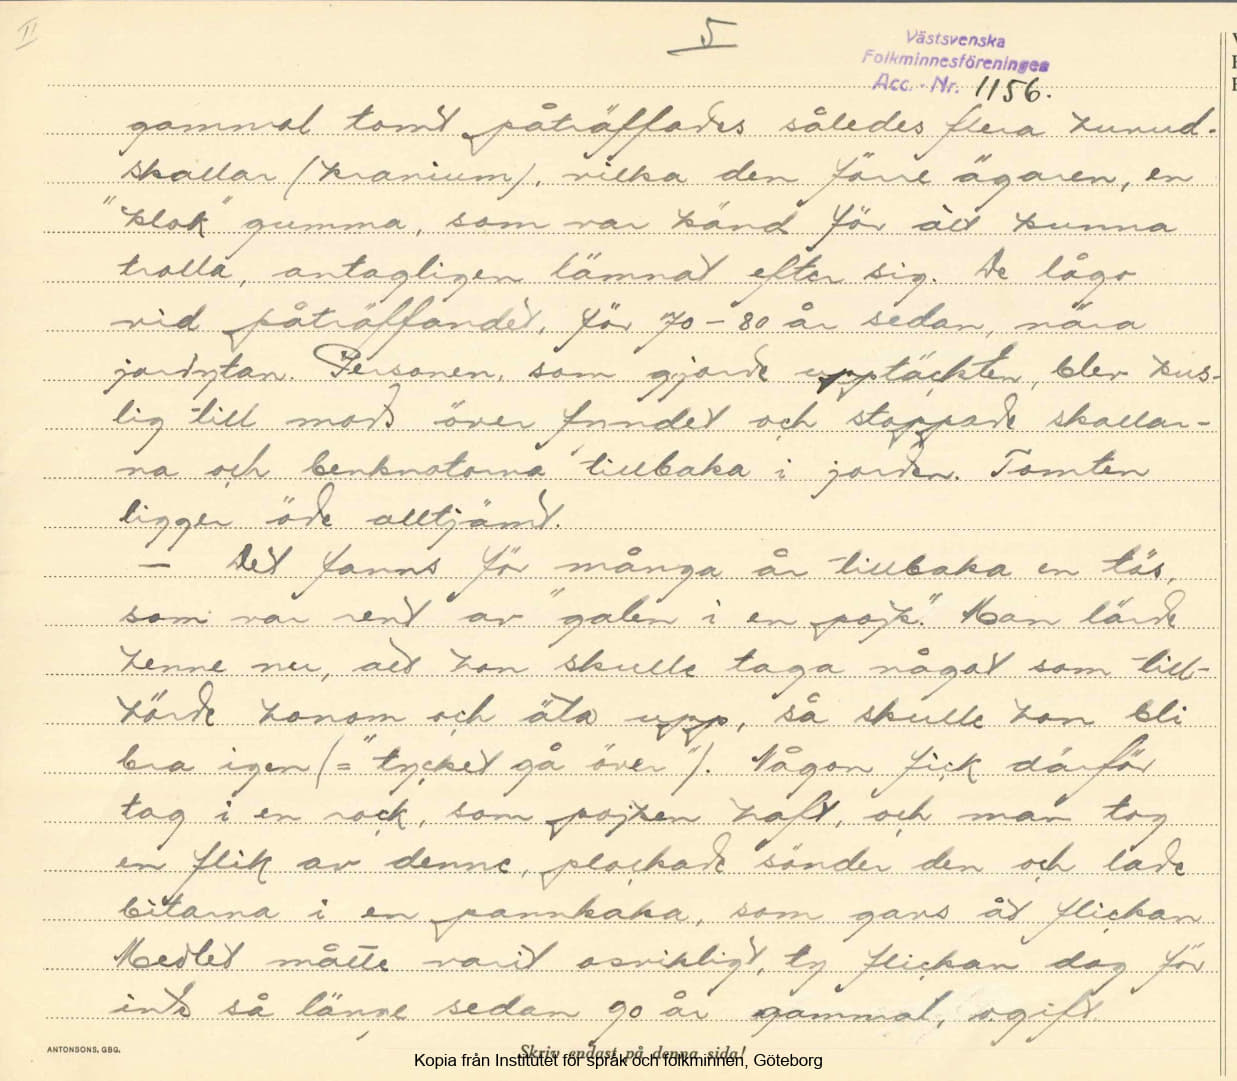 II
5
Västsvenska
Folkminnesföreningen
Acc. - Nr. 1156.
gammal tomt påträffades således flera huvud-
skallar (kranium), vilka den förre ägaren, en
"klok" gumma, som var känd för att kunna
trolla, antagligen lämnat efter sig. De lågo
vid påträffandet, för 70-80 år sedan, nära
jordytan. Personen, som gjorde upptäckten, blev kus-
lig till mods över fyndet och stoppade skallar-
na och benknotorna tillbaka i jorden. Tomten
ligger öde alltjämt.
— Det fanns för många år tillbaka en tös,
som var rent av "galen i en pojk". Man lärde
henne nu, att hon skulle taga något som till-
hörde honom och äta upp, så skulle hon bli
bra igen (= "tycket gå över"). Någon fick därför
tag i en rock, som pojken haft, och man tog
en flik av denne, plockade sönder den och lade
bitarna i en pannkaka, som gavs åt flickan
Medlet måtte varit osvikligt, ty flickan dog för
inte så länge sedan 90 år gammal, ogift
ANTONSONS, GBG.
Skriv endast på denna sida!
Kopia från Institutet för språk och folkminnen, Göteborg